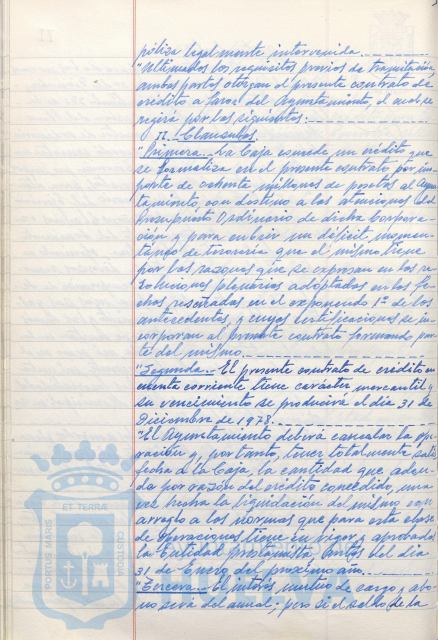 póliza legalmente intervenida.
"Ultimados los requisitos previos de tramitación
ambas partes otorgan el presente contrato de
crédito a favor del Ayuntamiento, el cual se
regirá por las siguientes:
II.- Clausulas.
"Primera.- La Caja concede un crédito que
se formaliza en el presente contrato por im-
porte de ochenta millones de pesetas al Ayun
tamiento, con destino a las atenciones del
Presupuesto Ordinario de dicha Corpora-
ción y para cubrir un déficit momen-
táneo de tesorería que el mismo tiene
por las razones que se expresan en las re-
soluciones plenarias adoptadas en las fe-
chas reseñadas en el exponendo 1º de los
antecedentes, y cuyas certificaciones se in-
corporan al presente contrato formando par-
te del mismo.
"Segunda.- El presente contrato de crédito en
cuenta corriente tiene carácter mercantil y
su vencimiento se producirá el día 31 de
Diciembre de 1978.
"El Ayuntamiento deberá cancelar la ope-
ración y, por tanto, tener totalmente satis
fecha a la Caja, la cantidad que adeu-
da por razón del crédito concedido, una
vez hecha la liquidación del mismo con
arreglo a las normas que para esta clase
de operaciones tiene en vigor y aprobadas
la Entidad prestamista, antes del día
31 de Enero del próximo año.
"Tercera.- El interés mutuo de cargo y abo-
no será del anual; pero si el saldo de la
ET TERRA
PORTUS MARIS
CUSTODIA
HUELVA